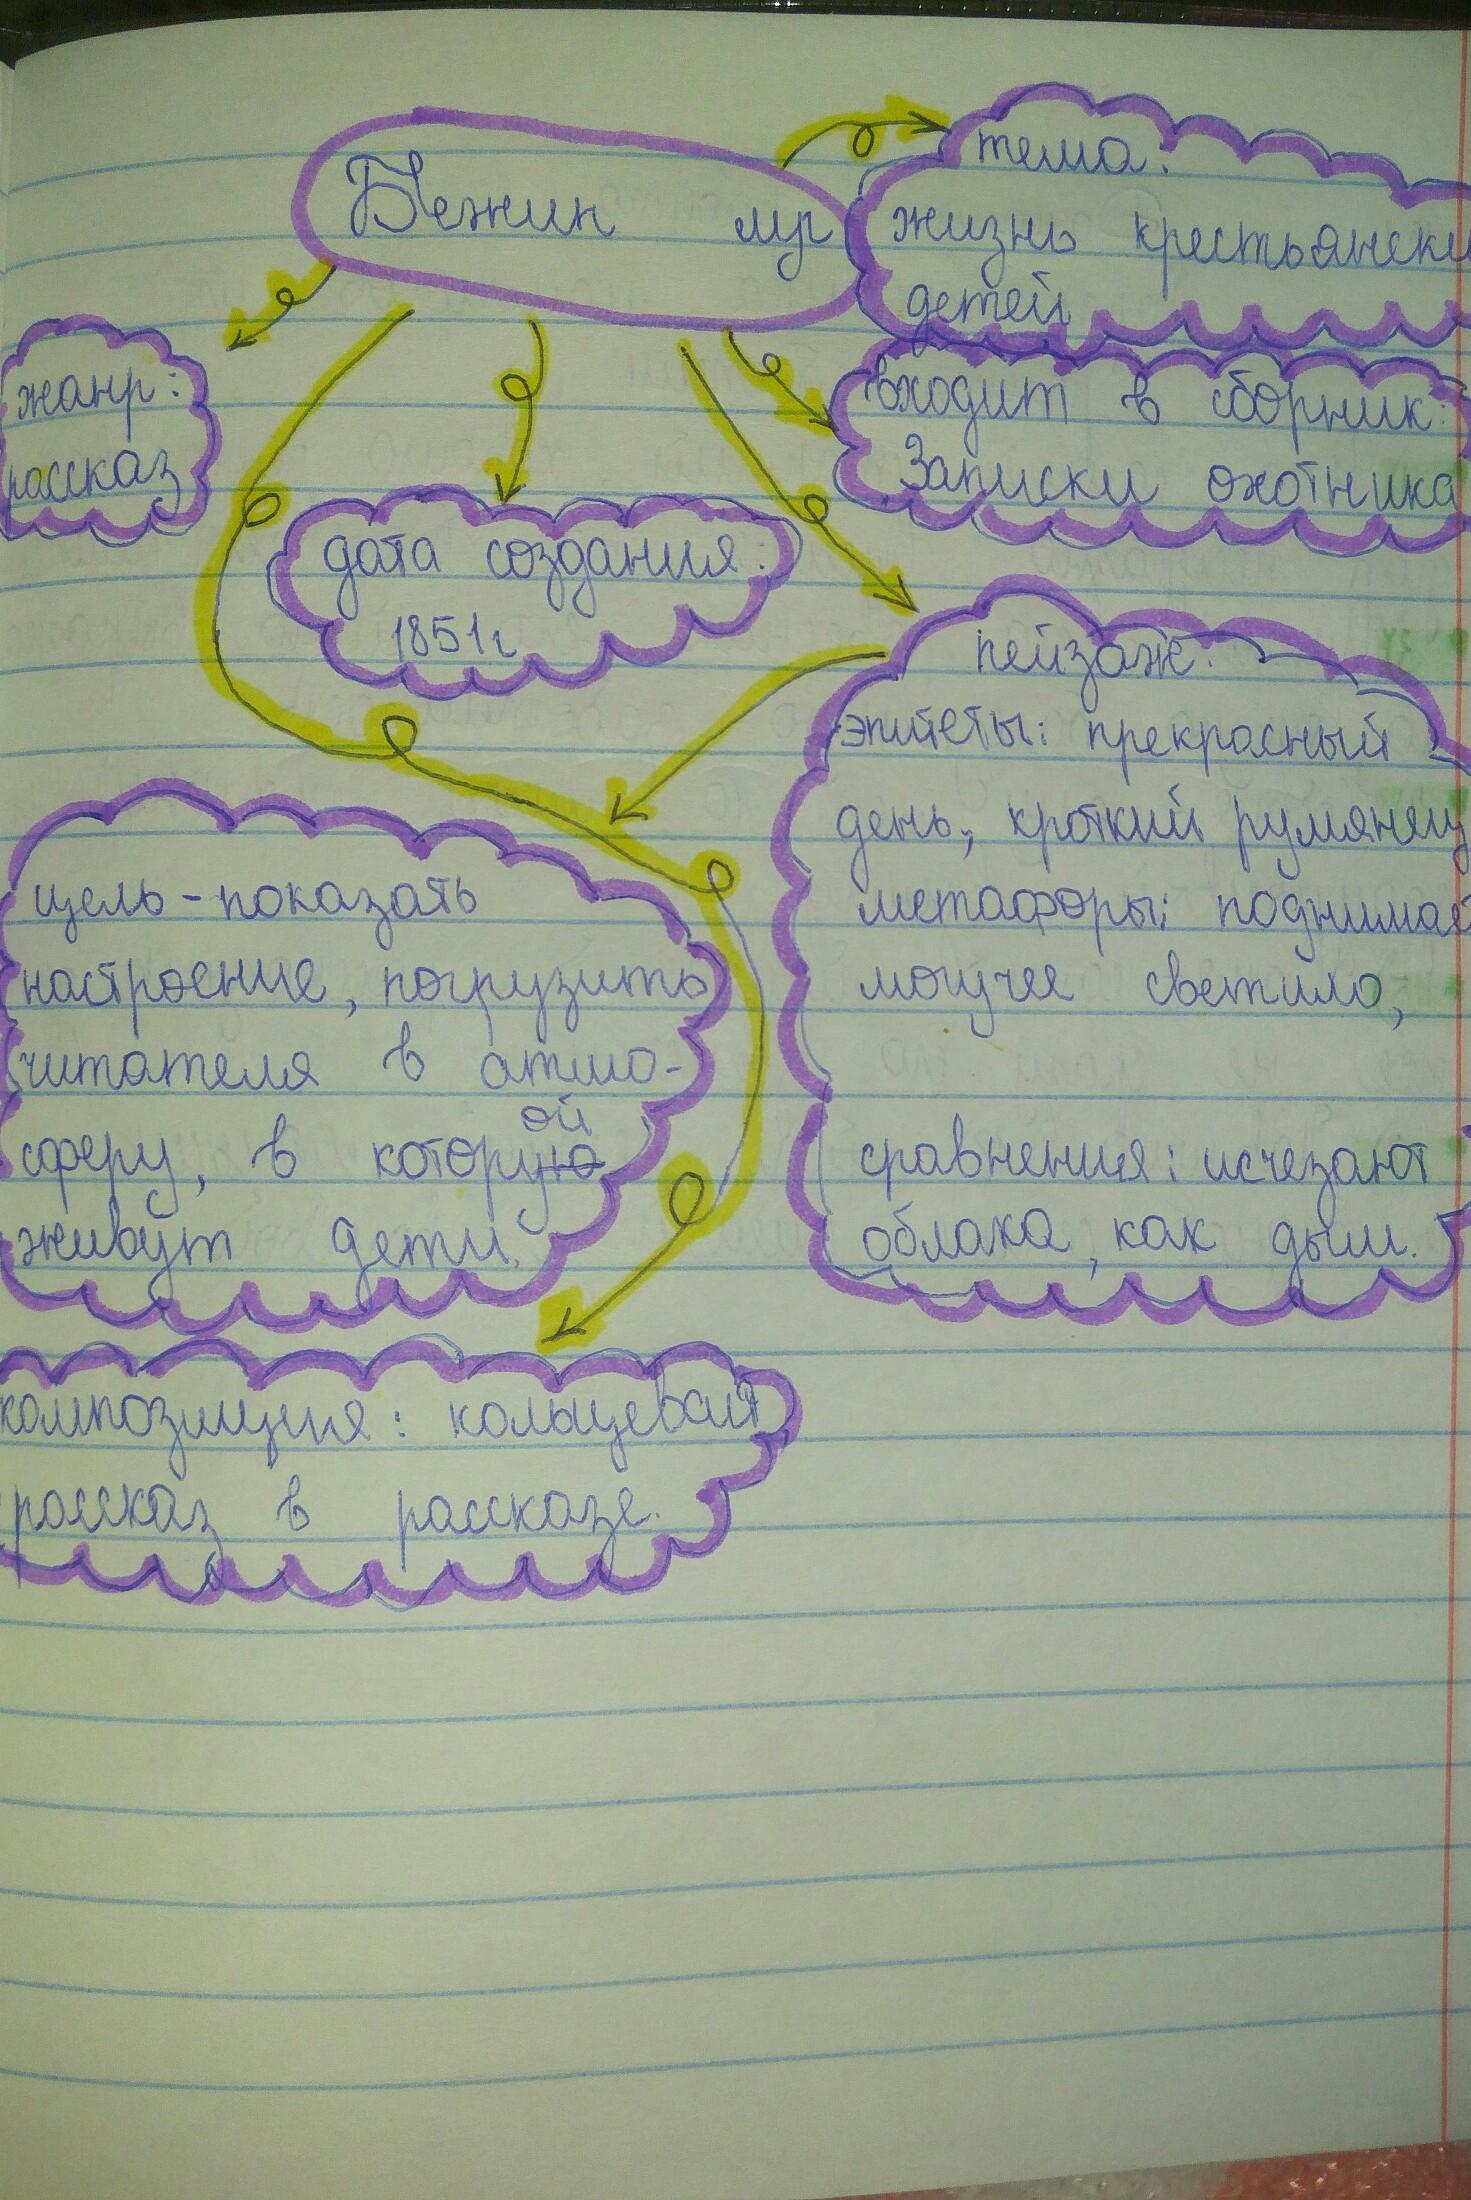 Бежин луг
тема:
жизнь крестьянски
детей
входит в сборник:
Записки охотника
жанр:
рассказ
дата создания:
1851г
пейзаж:
эпитеты: прекрасный
день, кроткий румянец
метафоры: поднимае
могучее светило,
сравнения: исчезают
облака, как дым.
цель - показать
настроение, погрузить
читателя в атмо-
ой
сферу, в которую
живут дети.
композиция: кольцевая,
рассказ в рассказе.